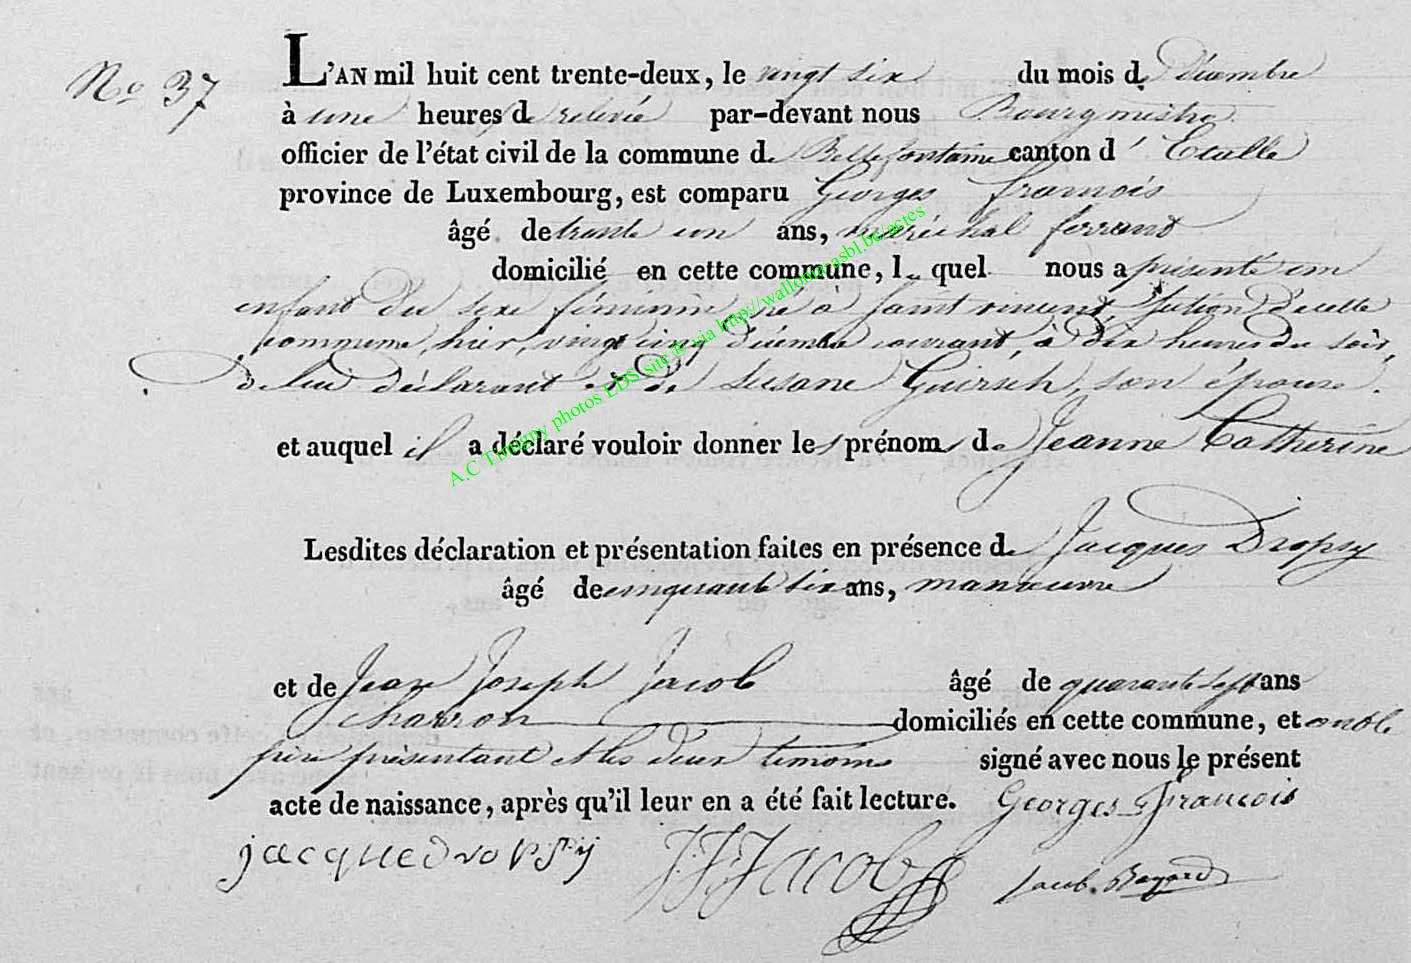 No 37
L'AN mil huit cent trente-deux, le vingt six du mois de Décembre
à une heures de relevée par-devant nous Bourgmestre
officier de l'état civil de la commune de Bellefontaine canton d'Etalle
province de Luxembourg, est comparu Georges francois
âgé de trente un ans, maréchal ferrant
domicilié en cette commune, lequel nous a présenté un
enfant du sexe féminin né à Saint vincent, Section d'icelle
commune, hier, vingt cinq décembre courant, à dix heures du soir,
de lui déclarant et de Susane Guirsch, son épouse.
et auquel il a déclaré vouloir donner les prénoms de Jeanne Catherine
Lesdites déclaration et présentation faites en présence de Jacques Dropsy
âgé de cinquante six ans, manœuvre
et de Jean Joseph Jacob âgé de quarante sept ans
charron domiciliés en cette commune, et ont le
père présentant et les deux témoins signé avec nous le présent
acte de naissance, après qu'il leur en a été fait lecture. Georges francois
jacque dropsy J.J. Jacob
A.C Tintigny photos EDS (site & via http://wallonia-asbl.be/actes